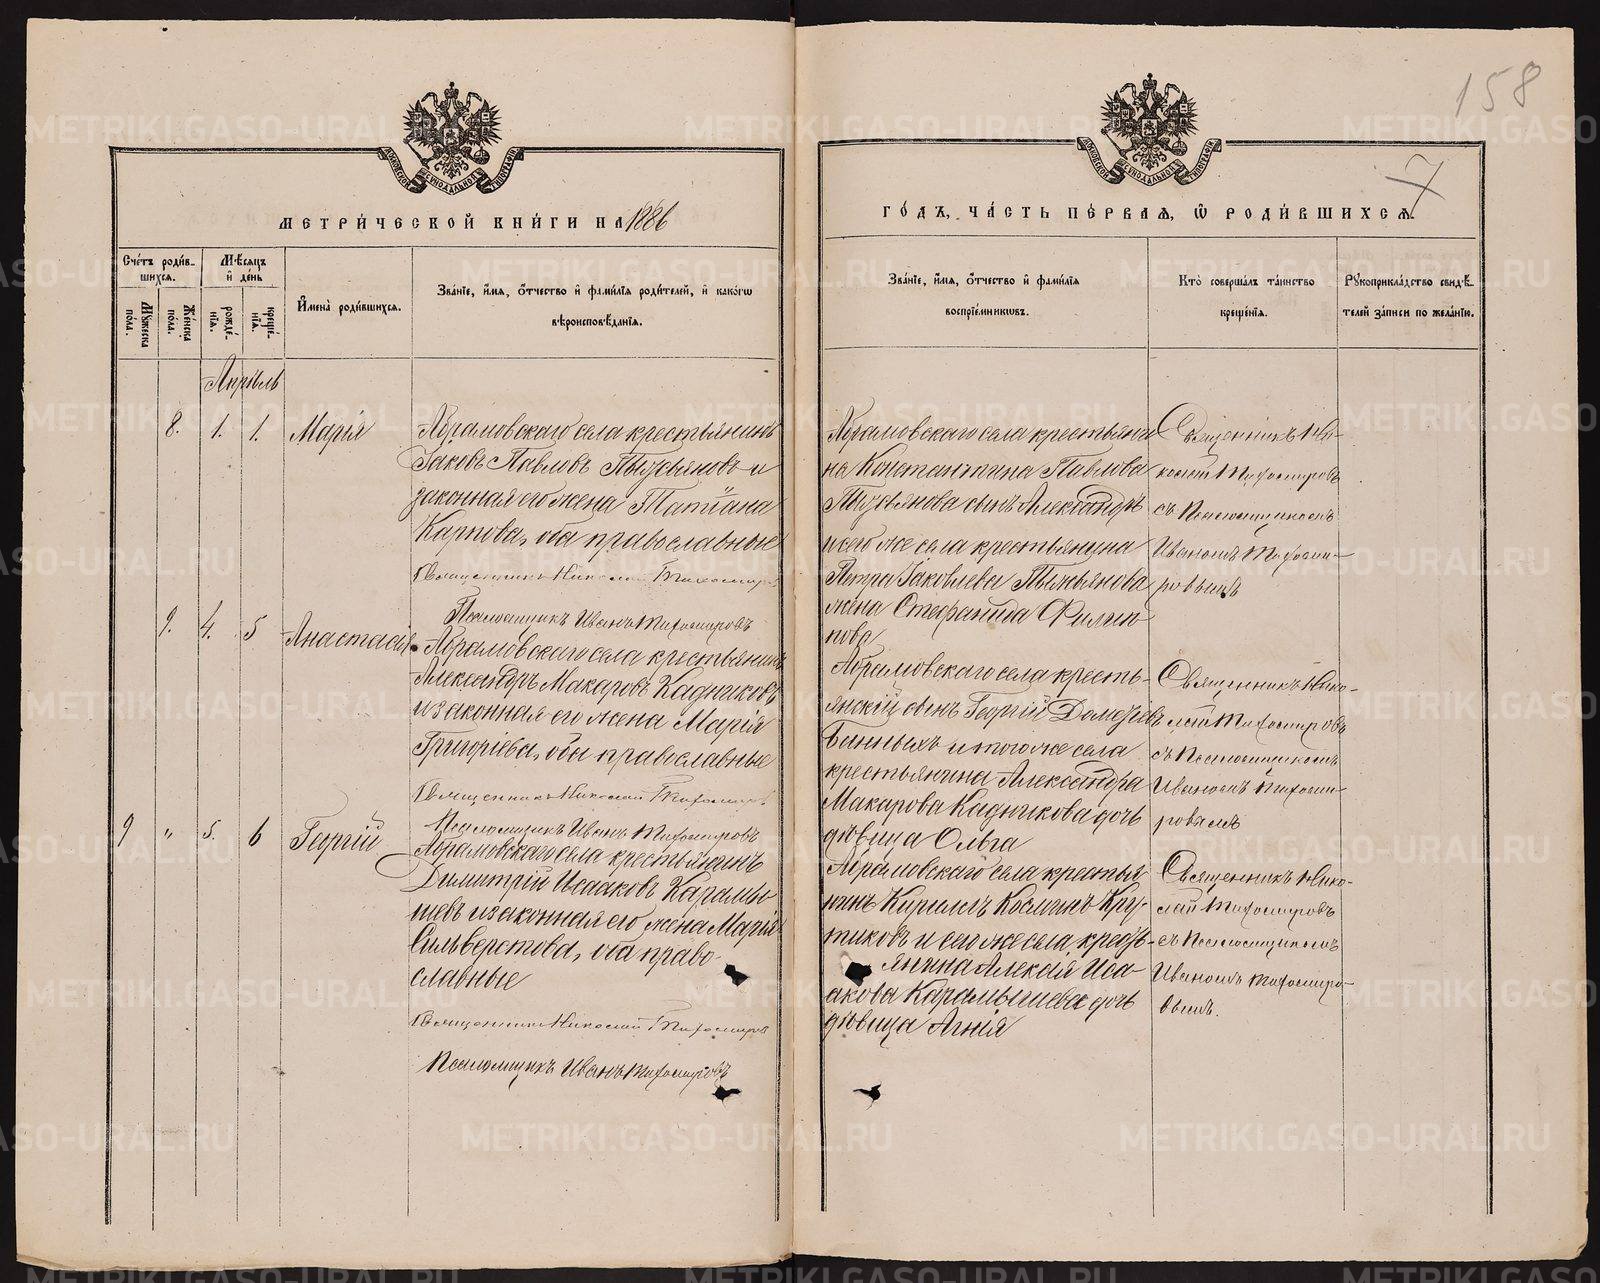 158
7
МЕТРИ́ЧЕСКОЙ КНИ́ГИ НА 1886
ГО́ДЪ, ЧА́СТЬ ПЕ́РВАЯ, Ѡ РОДИ́ВШИХСЯ.
Сче́тъ роди́вшихся.
Му́жеска по́ла.
Же́нска по́ла.
Мѣ́сяцъ и де́нь
рожде́нїя.
креще́нїя.
И҆мена̀ роди́вшихся.
Зва́нїе, и҆́мя, ѻ҆́тчество и҆ фами́лїя роди́телей, и҆ како́гѡ
вѣроисповѣ́данїя.
Зва́нїе, и҆́мя, ѻ҆́тчество и҆ фами́лїя
воспрїе́мникѡвъ.
Кто̀ соверша́лъ та́инство
креще́нїя.
Рꙋкоприкла́дство свидѣ́-
телей за́писи по жела́нїю.
Апрѣль
8. 1. 1. Марія
Абрамовскаго села крестьянинъ
Іаковъ Павловъ и
законная его жена Татіана
Карпова, оба православные
Священникъ Николай Тихомировъ
Псаломщикъ Иванъ Тихомировъ
Абрамовскаго села крестьяни
на Константина Павлова
сынъ Александръ
и сего же села крестьянина
Петра Іаковлева
жена Стефанида Филип
пова
Священникъ Ни-
колай Тихомировъ
съ Псаломщикомъ
Иваномъ Тихоми-
ровымъ
9. 4. 5 Анастасія
Абрамовскаго села крестьянинъ
Александръ Макаровъ Кадниковъ
и законная его жена Марія
Григоріева, оба православные
Священникъ Николай Тихомировъ
Псаломщикъ Иванъ Тихомировъ
Абрамовскаго села кресть-
янскій сынъ Георгій
Банныхъ и того же села
крестьянина Александра
Макарова Кадникова дочь
дѣвица Ольга
Священникъ Нико-
лай Тихомировъ
съ Псаломщикомъ
Иваномъ Тихоми-
ровымъ
9 " 5. 6 Георгій
Абрамовскаго села крестьянинъ
Димитрій Исааковъ Карамы-
шевъ и законная его жена Марія
Сильверстова, оба право-
славные
Священникъ Николай Тихомировъ
Псаломщикъ Иванъ Тихомировъ
Абрамовскаго села крестья
нинъ Кириллъ Косминъ Кру-
тиковъ и сего же села кресть-
янина Алексія Иса-
акова Карамышева дочь
дѣвица Агнія
Священникъ Нико-
лай Тихомировъ
съ Псаломщикомъ
Иваномъ Тихомиро-
вымъ.
METRIKI.GASO-URAL.RU